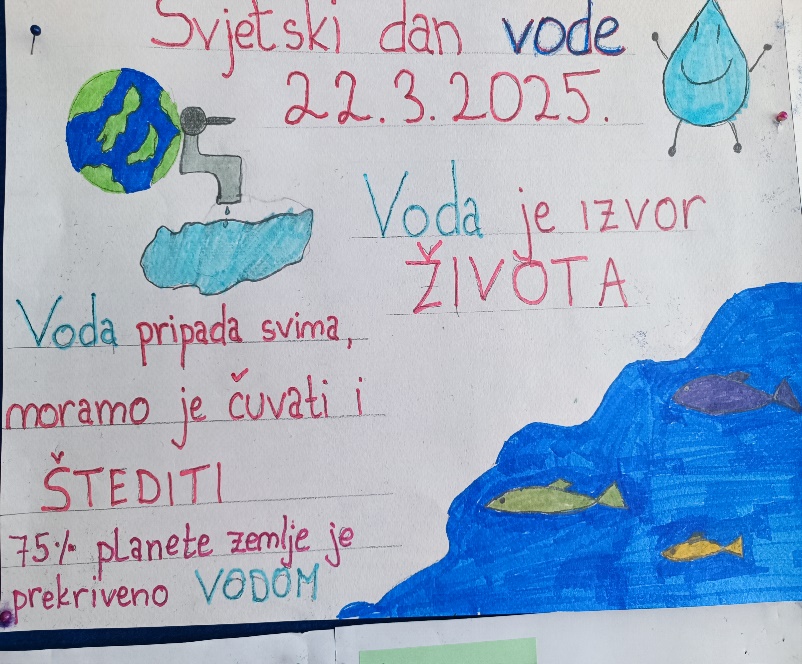 Svjetski dan vode
22.3.2025.
Voda je izvor
ŽIVOTA
Voda pripada svima,
moramo je čuvati i
ŠTEDITI
75% planete zemlje je
prekriveno VODOM